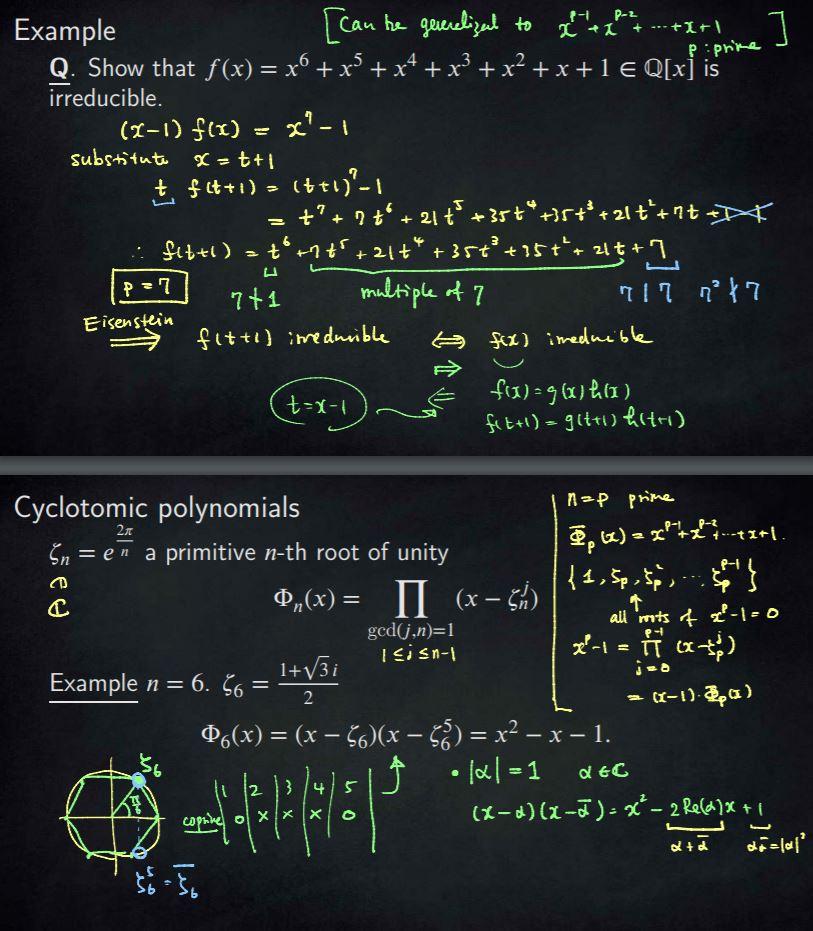 Example
[Can be generalized to x^{p-1}+x^{p-2}+ ⋯ +x+1
p: prime ]
Q. Show that f(x) = x⁶ + x⁵ + x⁴ + x³ + x² + x + 1 ∈ ℚ[x] is
irreducible.
(x-1) f(x) = x⁷ - 1
substitute x = t+1
t f(t+1) = (t+1)⁷ -1
= t⁷ + 7t⁶ + 21t⁵ + 35t⁴ + 35t³ + 21t² + 7t +1 -1
∴ f(t+1) = t⁶ + 7t⁵ + 21t⁴ + 35t³ + 35t² + 21t + 7
p = 7
7∤1 multiple of 7 7|7 7²∤7
Eisenstein
⟹ f(t+1) irreducible ⟺ f(x) irreducible
⇒
t=x-1 ⇐ f(x) = g(x) h(x)
f(t+1) = g(t+1) h(t+1)
Cyclotomic polynomials
ζₙ = e^{2π/n} a primitive n-th root of unity
∩
ℂ
Φₙ(x) = ∏ (x − ζₙʲ)
gcd(j,n)=1
1≤j≤n-1
n=p prime
Φ_p(x) = x^{p-1}+x^{p-2}+⋯+x+1.
{1, ζ_p, ζ_p², ⋯ ζ_p^{p-1}}
↑
all roots of x^p-1=0
x^p-1 = ∏_{j=0}^{p-1} (x-ζ_p^j)
= (x-1)·Φ_p(x)
Example n = 6. ζ₆ = (1+√3 i)/2
Φ₆(x) = (x − ζ₆)(x − ζ₆⁵) = x² − x − 1.
ζ₆
π/6
ζ₆⁵ = ζ̄₆
1 2 3 4 5
coprime O × × × O
• |α| = 1 α∈ℂ
(x-α)(x-ᾱ) = x² - 2Re(α)x + 1
α+ᾱ αᾱ=|α|²